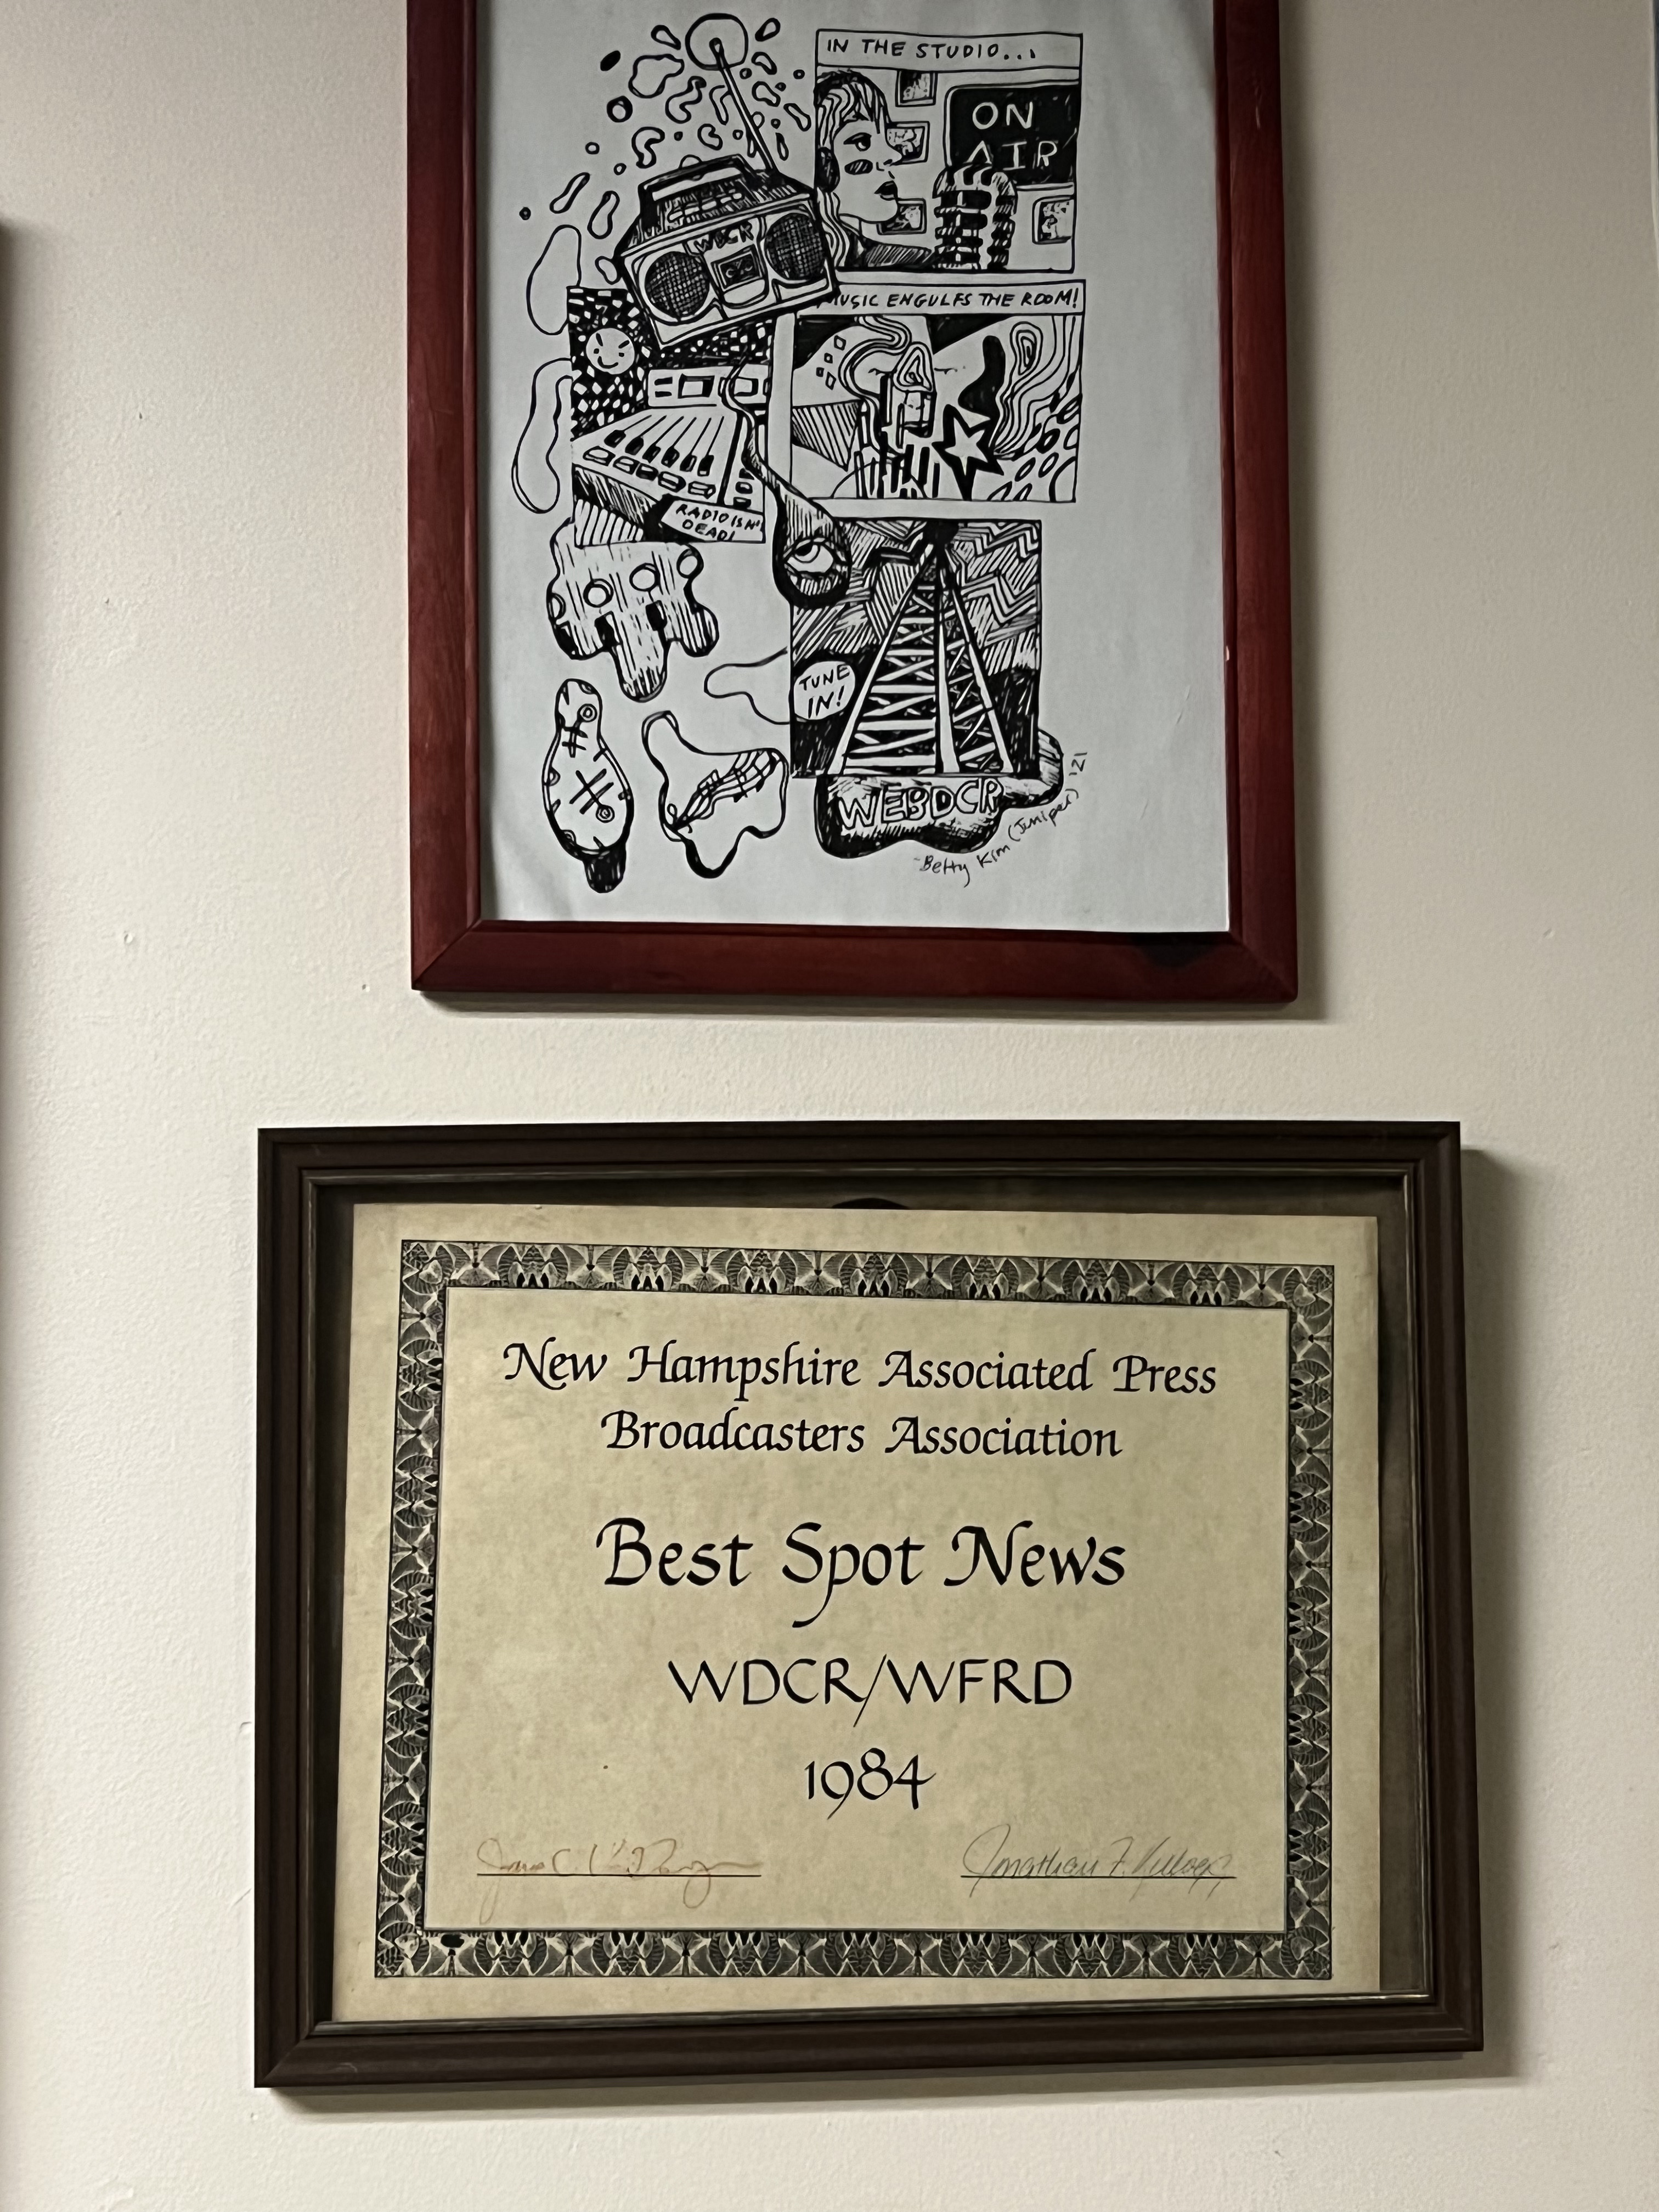 IN THE STUDIO...
ON
AIR
WDCR
MUSIC ENGULFS THE ROOM!
RADIO ISN'
DEAD!
TUNE
IN!
WEBDCR
-Betty Kim (Juniper) '21
New Hampshire Associated Press
Broadcasters Association
Best Spot News
WDCR/WFRD
1984
Jonathan F.